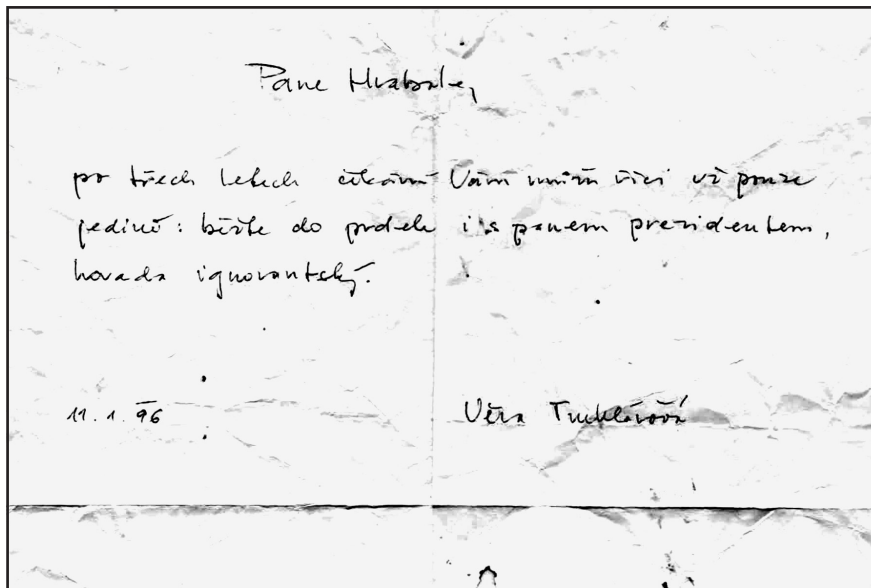 Pane Hrabale,
po třech letech čekání Vám musím říci už pouze
jediné: běžte do prdele i s panem prezidentem,
hovada ignorantský.
11. 1. 96 Věra